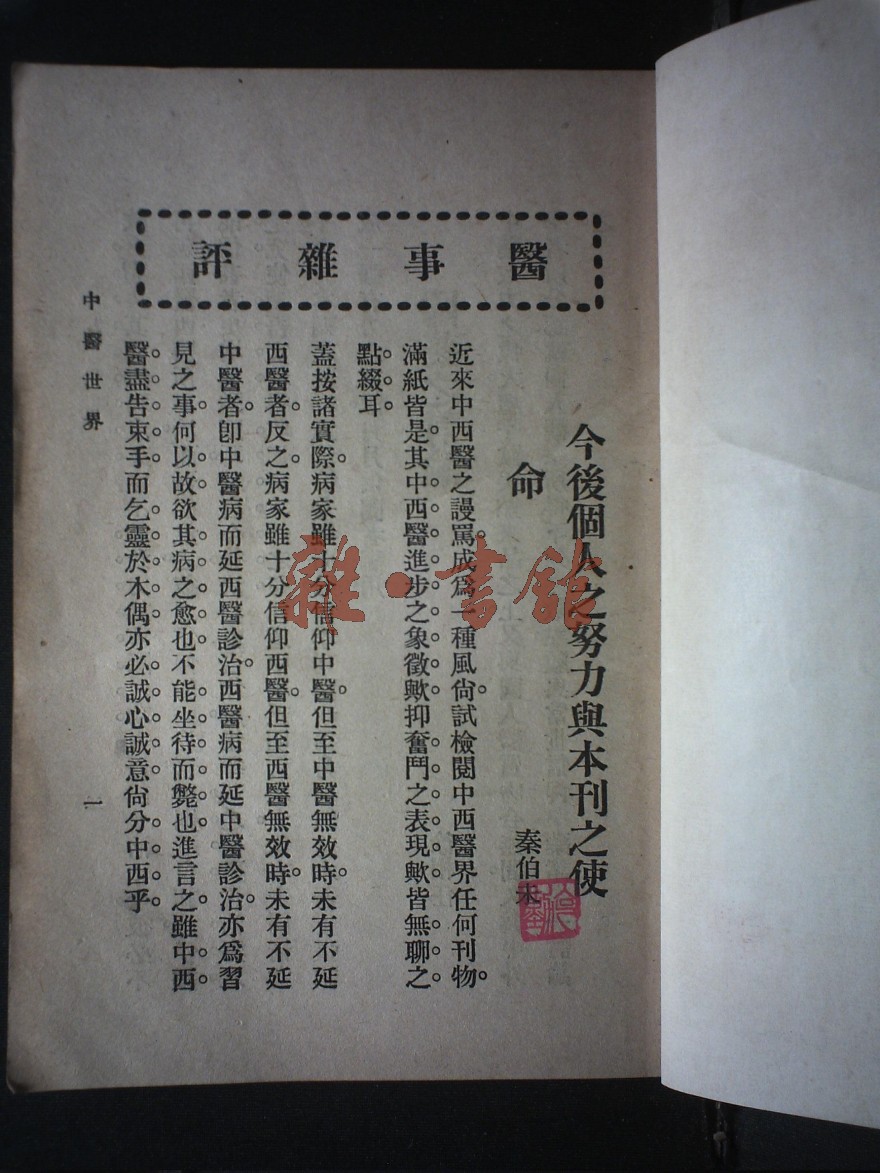 醫事雜評
今後個人之努力與本刊之使
命
秦伯未
近來中西醫之謾罵成爲一種風尙。試檢閱中西醫界任何刊物。
滿紙皆是。其中西醫進步之象徵歟。抑奮鬥之表現歟。皆無聊之
點綴耳。
蓋按諸實際。病家雖十分信仰中醫。但至中醫無效時。未有不延
西醫者。反之。病家雖十分信仰西醫。但至西醫無效時。未有不延
中醫者。卽中醫病而延西醫診治。西醫病而延中醫診治。亦爲習
見之事。何以故。欲其病之愈也。不能坐待而斃也。進言之。雖中西
醫盡告束手。而乞靈於木偶。亦必誠心誠意。尙分中西乎。
中醫世界
一
雜·書館